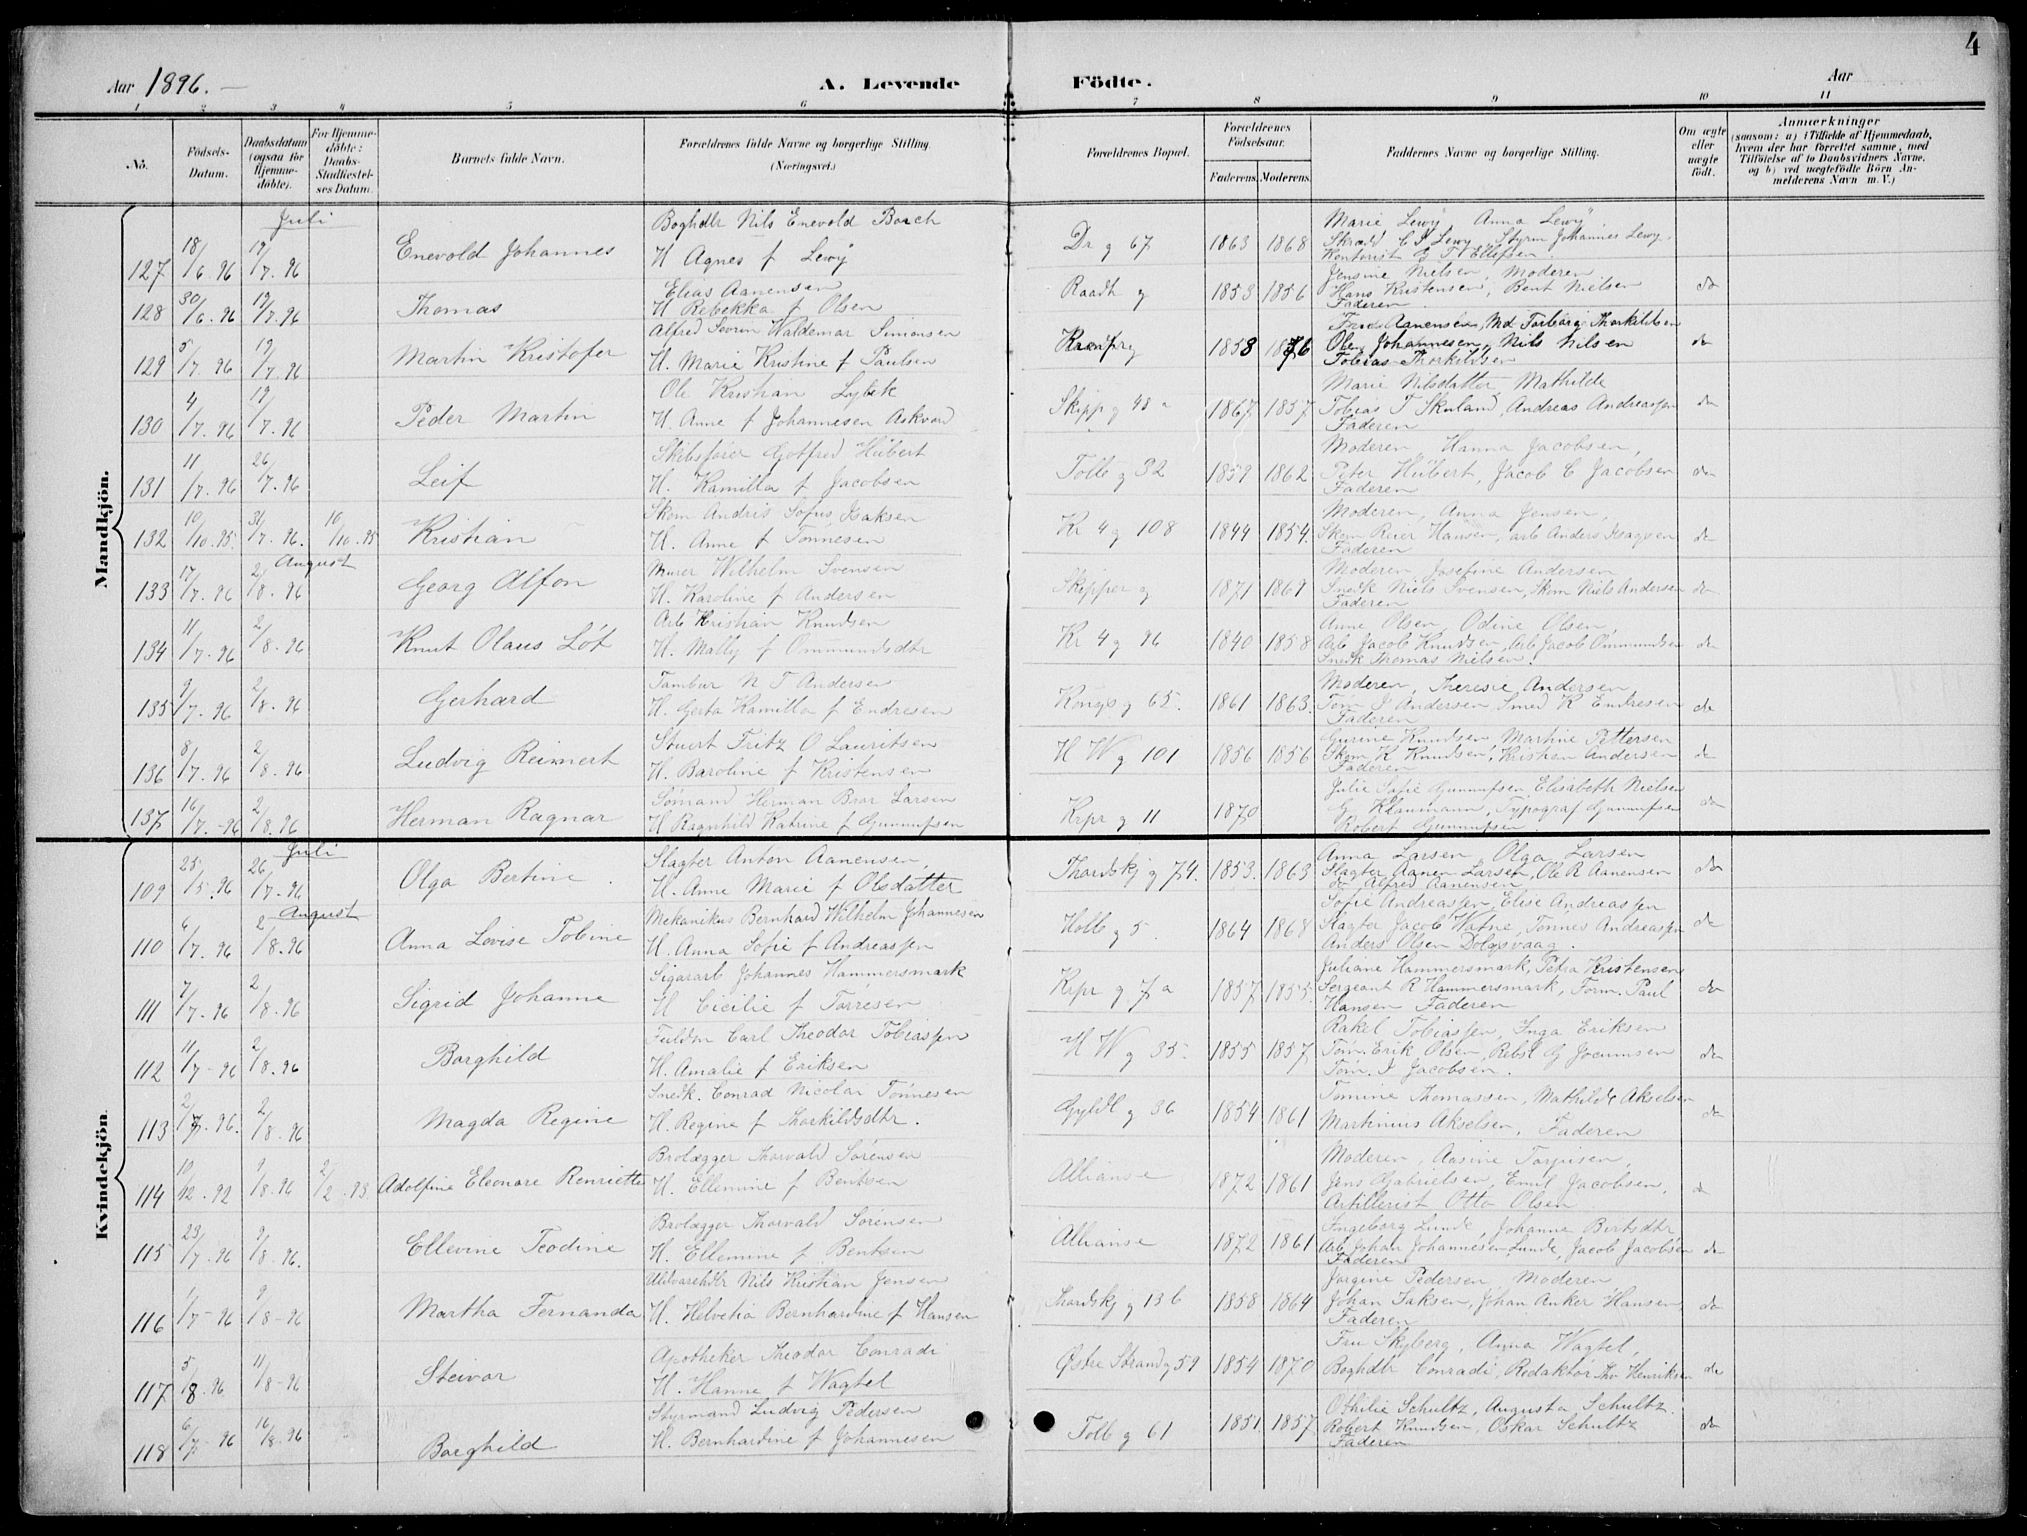 4
Aar 1896. A. Levende Födte. Aar
1 2 3 4 5 6 7 8 9 10 11
No.
Födsels-Datum.
Daabsdatum (ogsaa for Hjemme-döbte).
For Hjemme-döbte: Daabs-Stadfæstel-ses Datum.
Barnets fulde Navn.
Forældrenes fulde Navne og borgerlige Stilling. (Næringsvei.)
Forældrenes Bopæl.
Forældrenes Födselsaar.
Faderens. Moderens.
Faddernes Navne og borgerlige Stilling.
Om ægte eller uægte födt.
Anmærkninger (saasom: a) i Tilfælde af Hjemmedaab, hvem der har forrettet samme, med Tilföielse af to Daabsvidners Navne. og b) ved uægtefödte Börn An-melderens Navn m. V.)
Mandkjön.
Juli
Boghdlr Nils Enevold Borch Marie Lewy Anna Lewy
127 18/6. 96 19/7. 96 Enevold Johannes H Agnes f Lewy Dr g 67 1863 1868 Styrm Johannes Lewy
Elias Aanensen Jensine Nielsen, Moderen
128 30/6. 96 19/7. 96 Thomas H Rebekka f Olsen Raadh g 1853 1856 Hans Kristensen, Bent Nielsen do
Faderen
Alfred Waldemar Simonsen Aanensen, Md Torborg Thorkildsen
129 5/7. 96 19/7. 96 Martin Kristofer H. Marie Kristine f Paulsen 1858 1876 Ole Johannesen, Nils Nilsen do
Tobias Thorkildsen
Ole Kristian Lybek Marie Nilsdatter, Mathilde
130 4/7. 96 19/7. 96 Peder Martin H. Anne f Johannesen Askvard Skipp g 48 a 1867 1857 Tobias T Skuland, Andreas Andreassen do
Faderen
Skibsfører Gotfred Hübert Moderen Hanna Jacobsen,
131 11/7. 96 26/7. 96 Leif H. Kamilla f Jacobsen Tolb g 32 1859 1862 Peter Hübert, Jacob C Jacobsen do
Faderen
Skom Andris Sofus Isaksen Moderen, Anna Jensen,
132 10/10. 95. 31/7. 96. 10/10. 95 Kristian H. Anne f Tønnesen Kr 4 g 108 1844 1854. Skom Reier Hansen, arb Anders Isagsen do
Faderen
August
Murer Wilhelm Svensen Moderen Josefine Andersen
133 17/7. 96 2/8. 96 Georg Alfon H. Karoline f Andersen Skipper g 1871 1869 Snedk Niels Svensen, Skom Niels Andersen do
Faderen
Arb Kristian Knudsen Anne Olsen, Odine Olsen,
134 11/7. 96 2/8. 96 Knut Olaus Løt H. Mally f Ommundsdtr Kr 4 g 96 1840 1858 Arb Jacob Knudsen, Arb Jacob Ommundsen do
Snedk Thomas Nielsen.
Tambur N T Andersen Moderen, Theresie Andersen
135 9/7. 96 2/8. 96 Gerhard H. Gerta Kamilla f Endresen Kongs g 65. 1861 1863. Tøm J Andersen, Smed K Endresen do
Faderen
Stuert Fritz O Lauritsen Gurine Knudsen Martine Pettersen
136 8/7. 96 2/8. 96 Ludvig Reimert H. Baroline f Kristensen H W g 101 1856 1856 Skom K Knudsen, Kristian Andersen do
Faderen
Sømand Herman Bror Larsen Julie Sofie Gunnufsen, Elisabeth Nielsen
137 16/7. -96 2/8. 96 Herman Ragnar H Ragnhild Katrine f Gunnufsen Krpr g 11 1870 G Klaumann, Typograf Gunnufsen do
Robert Gunnufsen
Kvindekjön.
Juli
Slagter Anton Aanensen, Anna Larsen, Olga Larsen
109 25/5. 96 26/7. 96 Olga Bertine. H. Anne Marie f Olsdatter Thordskj g 74. 1853. 1863 Slagter Aanen Larsen, Ole R Aanensen do
do Alfred Aanensen
August
Mekanikus Bernhard Wilhelm Johannesen Sofie Andreassen, Elise Andreassen
110 6/7. 96 2/8. 96 Anna Lovise Tobine H. Anna Sofie f Andreassen Holb g 5. 1864 1868 Slagter Jacob Watne, Tønnes Andreassen do
Anders Olsen Dolgsvaag.
Sigararb Johannes Hammersmark Juliane Hammersmark, Petra Kristensen
111 7/7. 96 2/8. 96 Sigrid Johanne H Cicilie f Torresen Krpr g 7 a 1857 1855. Sergeant R Hammersmark, Form. Paul do
Hansen Faderen
Fuldm Carl Theodor Tobiassen Rakel Tobiassen, Inga Eriksen
112 11/7- 96 2/8. 96 Borghild H. Amalie f Eriksen H W g 35. 1855 1857 Tøm. Erik Olsen, Rebsl G Jocumsen do
Tøm. J Jacobsen.
Snedk. Conrad Nicolai Tønnesen Tomine Thomassen, Mathilde Akselsen
113 2/7. 96. 2/8. 96 Magda Regine H. Regine f Thorkildsdtr. Gyldl g 36 1854 1861 Martinius Akselsen, Faderen do
Brolægger Thorvald Sørensen Moderen, Aasine Torjusen,
114 10/12. 92 9/8. 96 2/2. 93 Adolfine Eleonore Henriette H. Ellemine f Bentsen Allianse 1872 1861 Jens Gabrielsen, Emil Jacobsen, do
Artillerist Otto Olsen
Brolægger Thorvald Sørensen Ingeborg Lunde, Johanne Bertsdtr
115 23/7. 96 9/8. 96. Ellevine Teodine H. Ellemine f Bentsen Allianse 1872 1861 Arb Johan Johannesen Lunde, Jacob Jacobsen do
Faderen
Uldvarehdlr Nils Kristian Jensen Jorgine Pedersen Moderen
116 1/7- 96 9/8- 96 Martha Fernanda H. Helvetia Bernhardine f Hansen Thordskj g 136 1858 1864 Johan Isaksen, Johan Anker Hansen do
Faderen
Apotheker Theodor Conradi Fru Skyberg, Anna Wagtel,
117 5/8. 96 11/8- 96 Steivor H. Hanne f Wagtel Østre Strand g 59 1854 1870 Boghdlr Conradi, Redaktør Thv Henriksen do
Styrmand Ludvig Pedersen Othilie Schultz, Augusta Schultz.
118 6/7. 96 16/8. 96 Borghild H. Bernhardine f Johannesen Tolb g 61 1851 1857 Robert Knudsen, Oskar Schultz do
Faderen